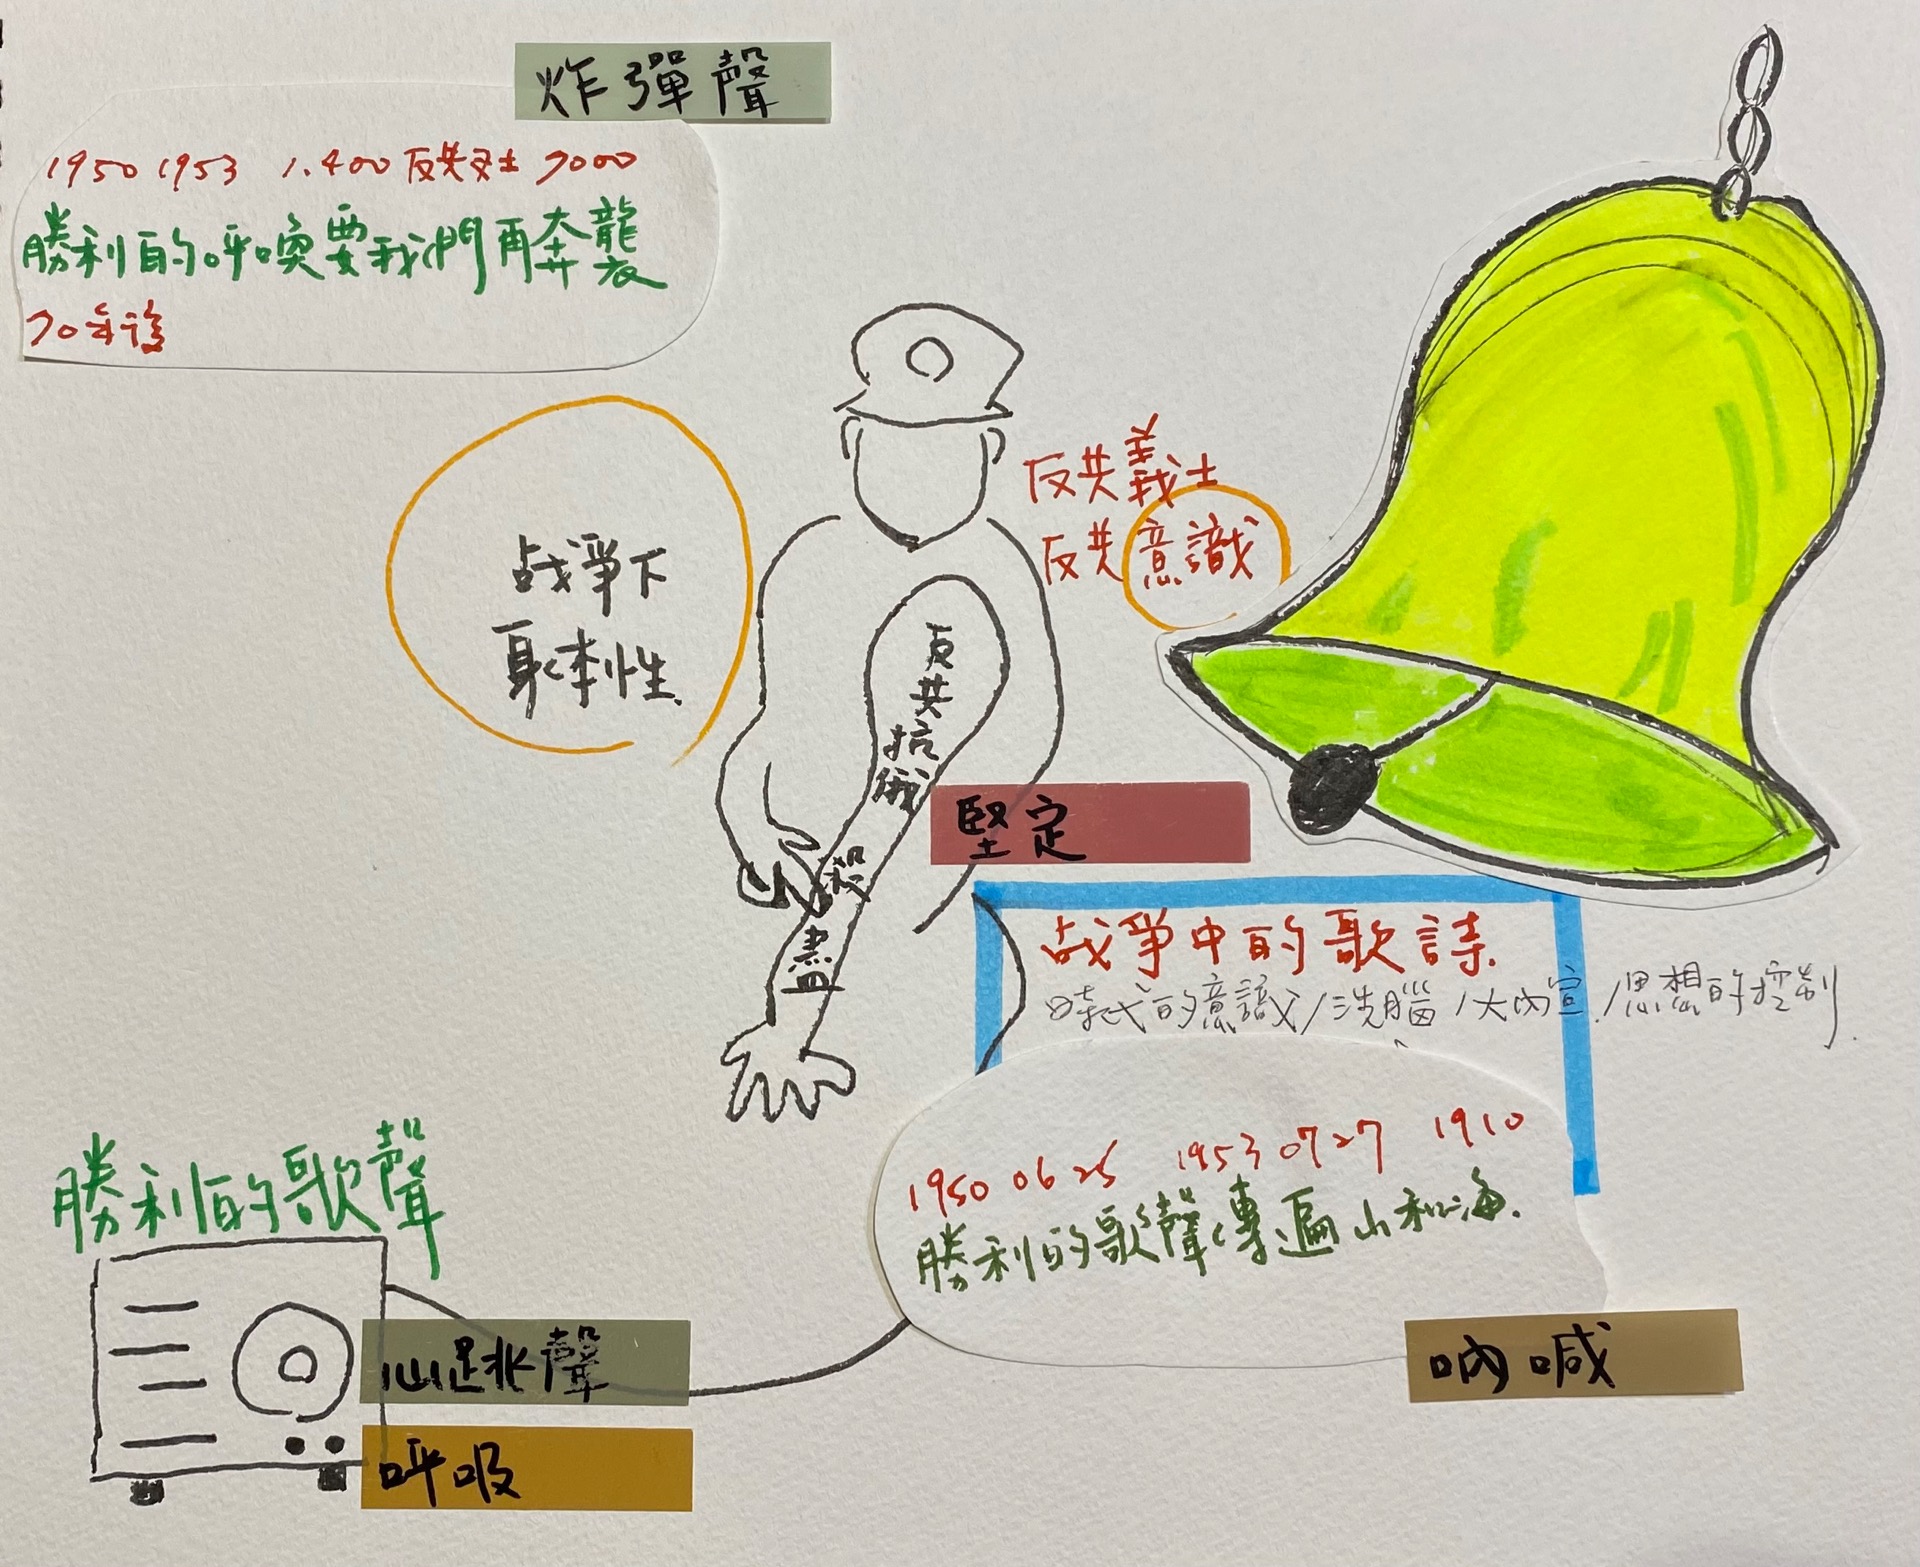 炸彈聲
1950 1953 1.400 反共义士 7000
勝利的呼喚要我們再奔襲
70年後
反共義士
反共意識
战爭下
取本性
反共抗俄
殺盡
堅定
战爭中的歌詩
時代的意識/洗腦/大內宣/思想的控制.
1950 06 25 1953 07 27 1910
勝利的歌聲傳遍山和海.
勝利的歌聲
心跳聲
吶喊
呼吸